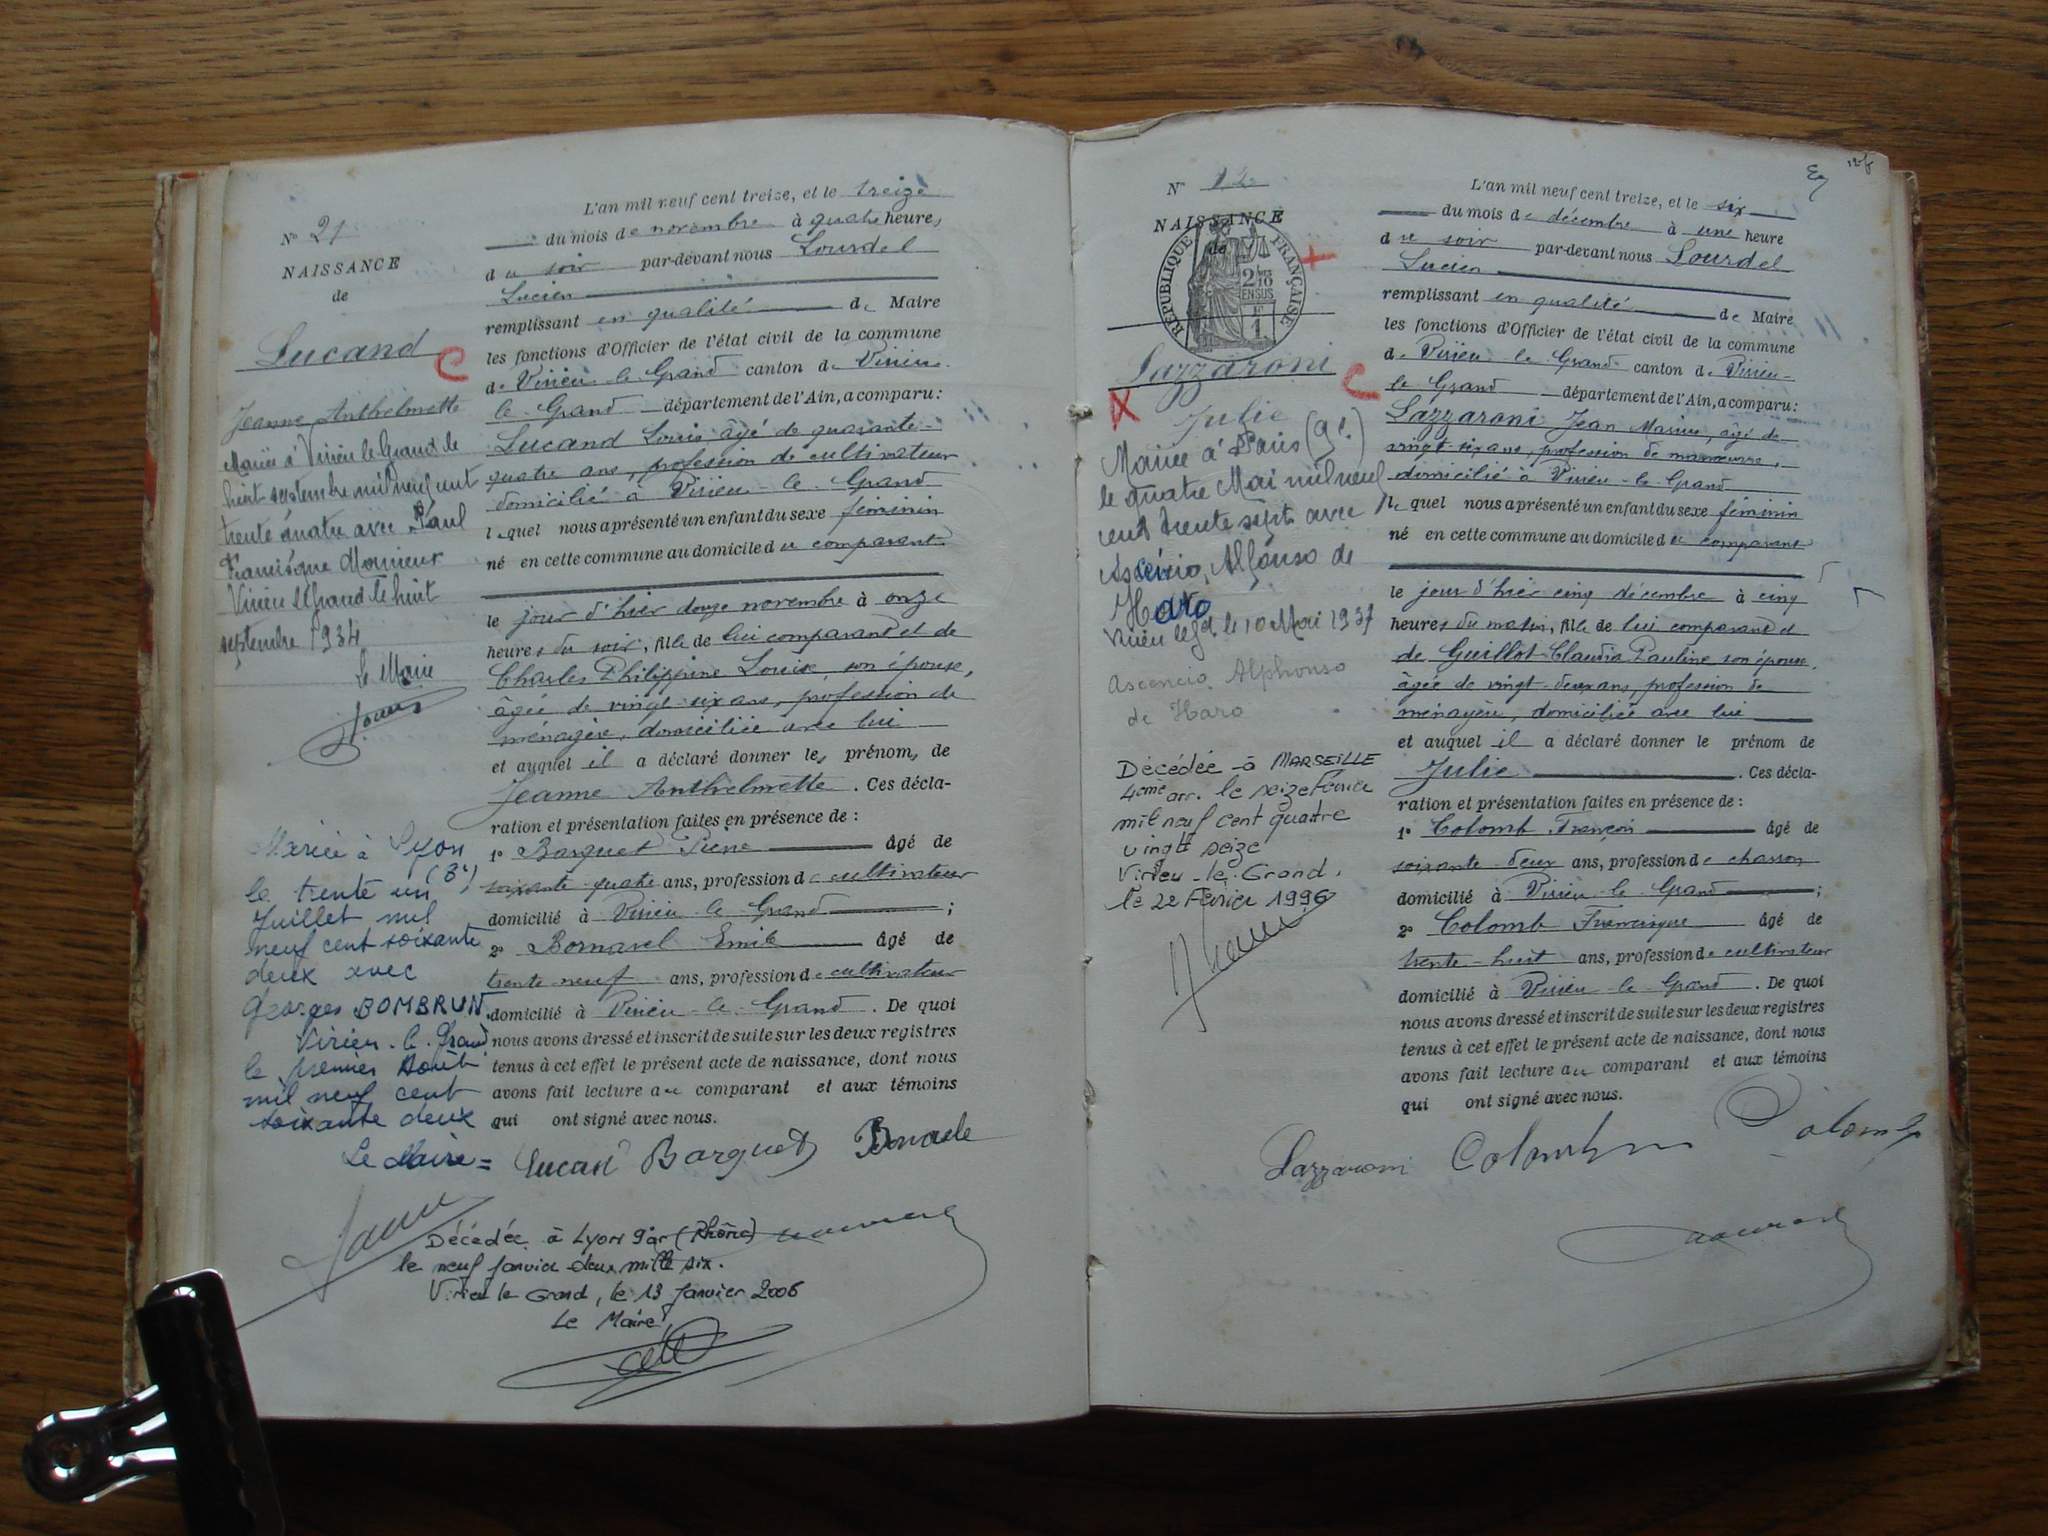 N° 21
NAISSANCE
de
Lucand
Jeanne Anthelmette
Mariée à Virieu le Grand le
huit septembre mil neuf cent
trente quatre avec Paul
Francisque Monieur
Virieu le Grand le huit
septembre 1934
Le Maire
Mariée à Lyon
(3e)
le trente un
Juillet mil
neuf cent soixante
deux avec
Georges BOMBRUN.
Virieu-le-Grand
le premier Août
mil neuf cent
soixante deux
Le Maire =
L'an mil neuf cent treize, et le treize
du mois de novembre à quatre heures
du soir par-devant nous Lourdel
Lucien
remplissant en qualité de Maire
les fonctions d'Officier de l'état civil de la commune
de Virieu-le-Grand canton de Virieu-
le-Grand département de l'Ain, a comparu :
Lucand Louis, âgé de quarante-
quatre ans, profession de cultivateur
domicilié à Virieu-le-Grand
lequel nous a présenté un enfant du sexe féminin
né en cette commune au domicile du comparant
le jour d'hier douze novembre à onze
heures du soir, fille de lui comparant et de
Charles Philippine Louise, son épouse,
âgée de vingt-six ans, profession de
ménagère, domiciliée avec lui
et auquel il a déclaré donner les prénoms de
Jeanne Anthelmette. Ces décla-
ration et présentation faites en présence de :
1° Barquet Pierre âgé de
soixante-quatre ans, profession de cultivateur
domicilié à Virieu-le-Grand ;
2° Bornarel Emile âgé de
trente neuf ans, profession de cultivateur
domicilié à Virieu-le-Grand. De quoi
nous avons dressé et inscrit de suite sur les deux registres
tenus à cet effet le présent acte de naissance, dont nous
avons fait lecture au comparant et aux témoins
qui ont signé avec nous.
Lucand Barquet
Décédée à Lyon 9ar (Rhône)
le neuf Janvier deux mille six.
Virieu le Grand, le 13 Janvier 2006
Le Maire,
N°
NAISSANCE
de
REPUBLIQUE FRANÇAISE
2/10
EN SUS
Lazzaroni
Julie
Mariée à Paris (9e)
le quatre Mai mil neuf
cent trente sept avec
Ascencio, Alfonso de
Haro
Virieu le Gd le 10 Mai 1937
Ascencio Alphonso
de Haro
Décédée à MARSEILLE
4ème arr. le seize Février
mil neuf cent quatre
vingt seize
Virieu-le-Grand.
le 22 Février 1996
L'an mil neuf cent treize, et le six
du mois de décembre à une heure
du soir par-devant nous Lourdel
Lucien
remplissant en qualité de Maire
les fonctions d'Officier de l'état civil de la commune
de Virieu-le-Grand canton de Virieu-
le Grand département de l'Ain, a comparu :
Lazzaroni Jean Marius, âgé de
vingt-six ans, profession de manœuvre,
domicilié à Virieu-le-Grand
lequel nous a présenté un enfant du sexe féminin
né en cette commune au domicile du comparant
le jour d'hier cinq décembre à cinq
heures du matin, fille de lui comparant et
de Guillot Claudia Pauline son épouse,
âgée de vingt-deux ans, profession de
ménagère, domiciliée avec lui
et auquel il a déclaré donner le prénom de
Julie. Ces décla-
ration et présentation faites en présence de :
1° Colomb François âgé de
soixante-deux ans, profession de charron
domicilié à Virieu-le-Grand ;
2° Colomb Francisque âgé de
trente-huit ans, profession de cultivateur
domicilié à Virieu-le-Grand. De quoi
nous avons dressé et inscrit de suite sur les deux registres
tenus à cet effet le présent acte de naissance, dont nous
avons fait lecture au comparant et aux témoins
qui ont signé avec nous.
Lazzaroni Colomb Colomb